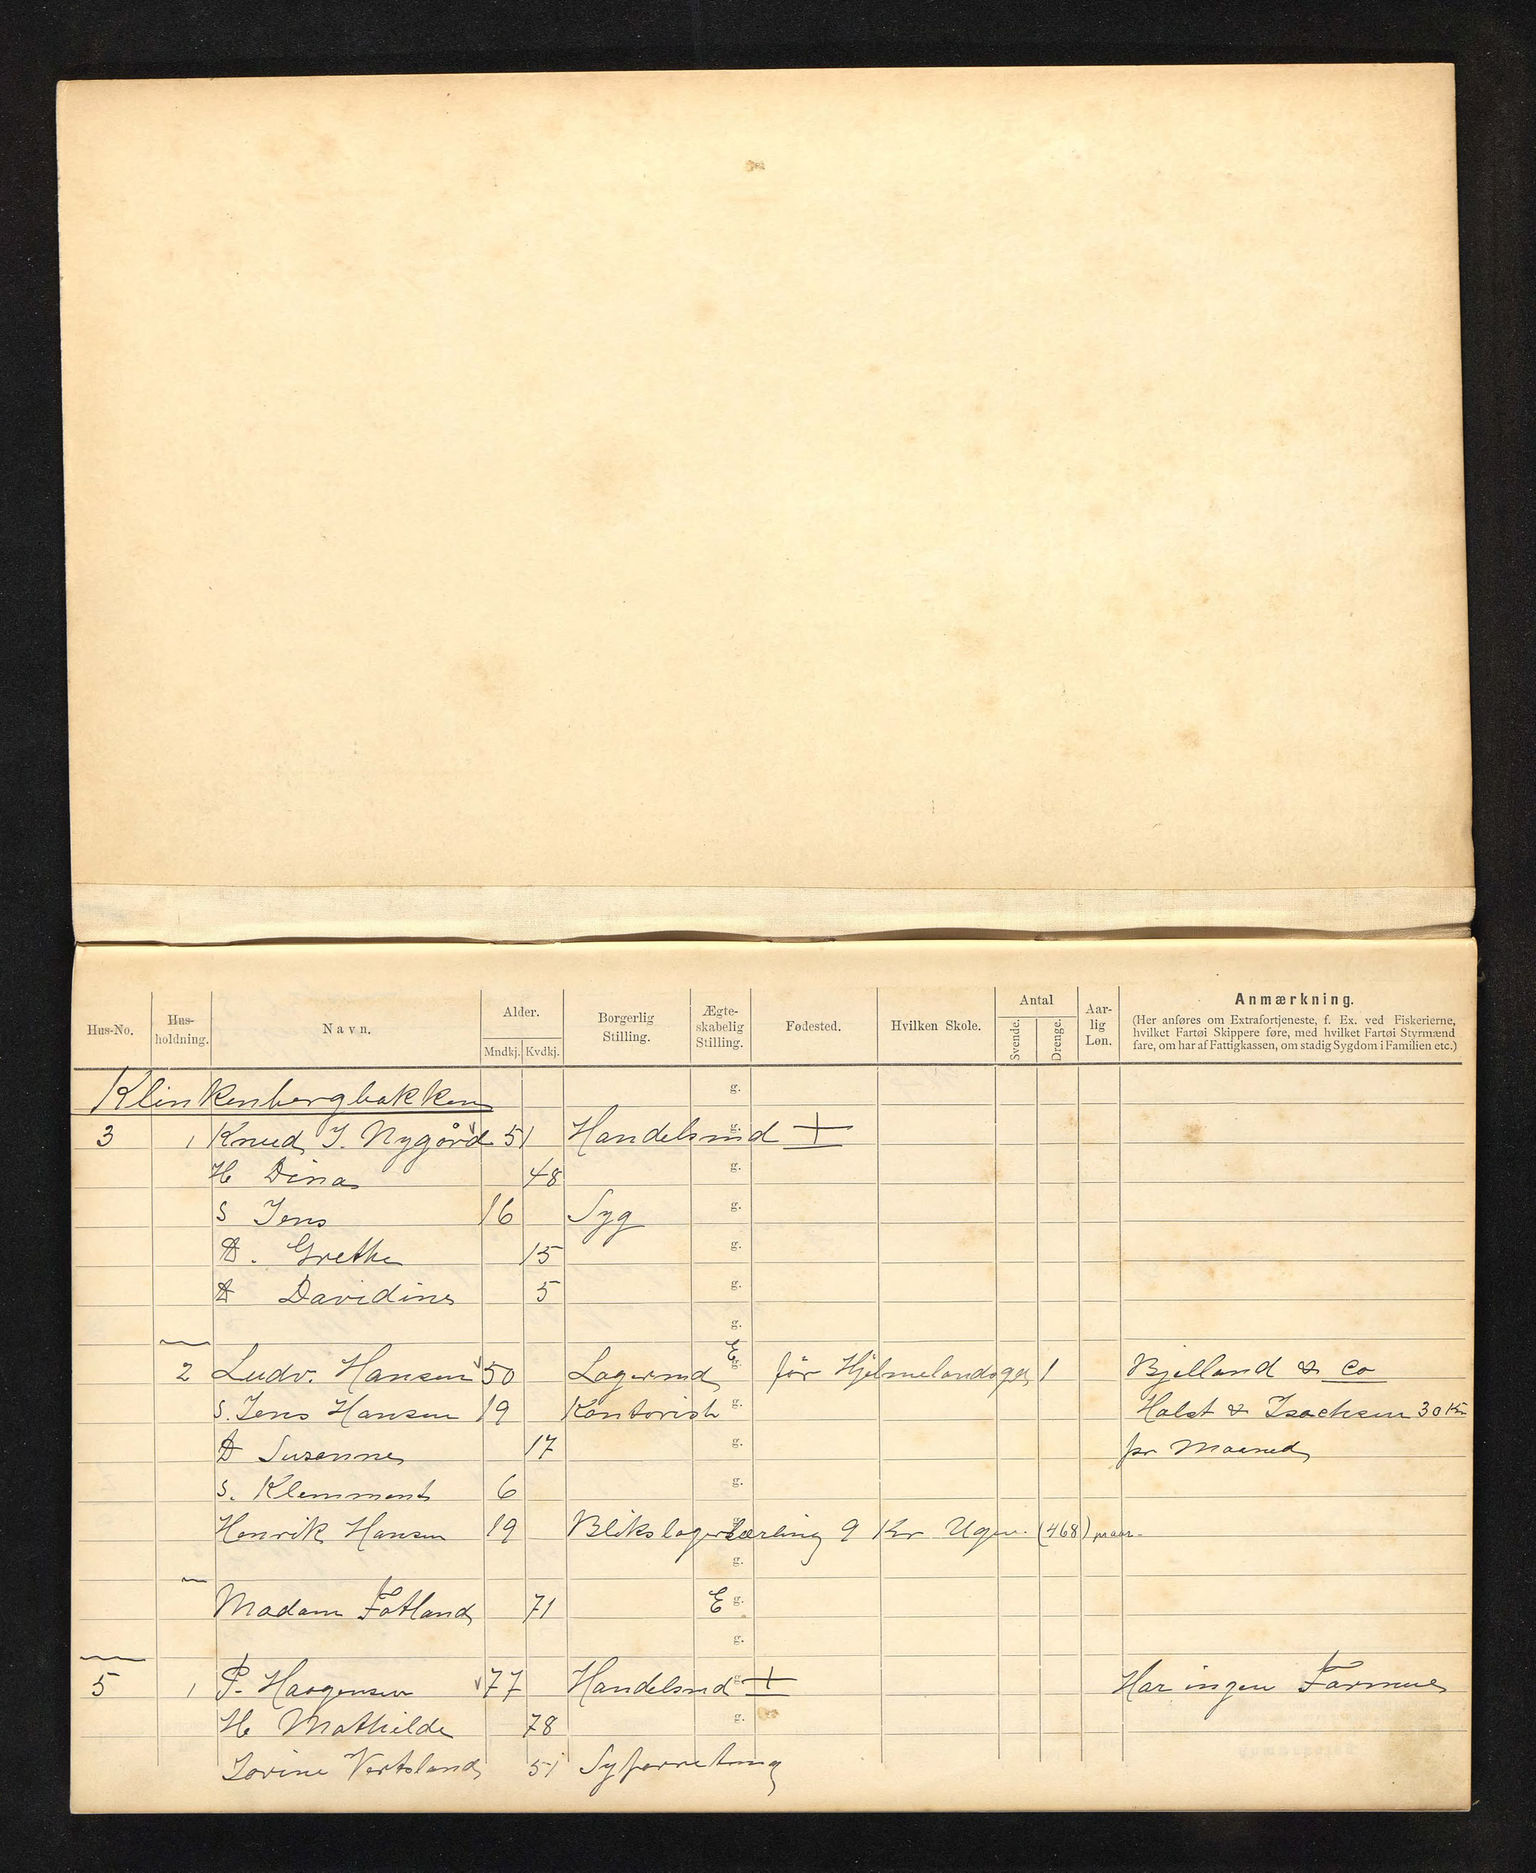 Hus-No. Hus-holdning. Navn. Alder. Mndkj. Kvdkj. Borgerlig Stilling. Ægte-skabelig Stilling. Fødested. Hvilken Skole. Antal Svende. Drenge. Aar-lig Løn. Anmærkning.
(Her anføres om Extrafortjeneste, f. Ex. ved Fiskerierne,
hvilket Fartøi Skippere føre, med hvilket Fartøi Styrmænd
fare, om har af Fattigkassen, om stadig Sygdom i Familien etc.)
Klinkenbergbakken g.
3 1 Knud J. Nygård 51 Handelsmd g. +
H Dina 48 g.
S Jens 16 Syg g.
D. Grethe 15 g.
D Davidine 5 g.
g.
2 Ludv. Hansen 50 Lagermd E g. før Hjelmelandsgd 1 Bjelland & Co
S. Jens Hansen 19 Kontorist g. Holst & Isachsen 30 Kr
D Susanne 17 g. pr Maaned
S. Klemment 6 g.
Henrik Hansen 19 Blikslagerlærling 9 Kr Ugen. (468) pr aar.
g.
Madam Fatland 71 E g.
g.
5 1 P. Haagensen 77 Handelsmd g. + Har ingen Formue
H Mathilde 78 g.
Jorine Vertsland 51 Syforretning